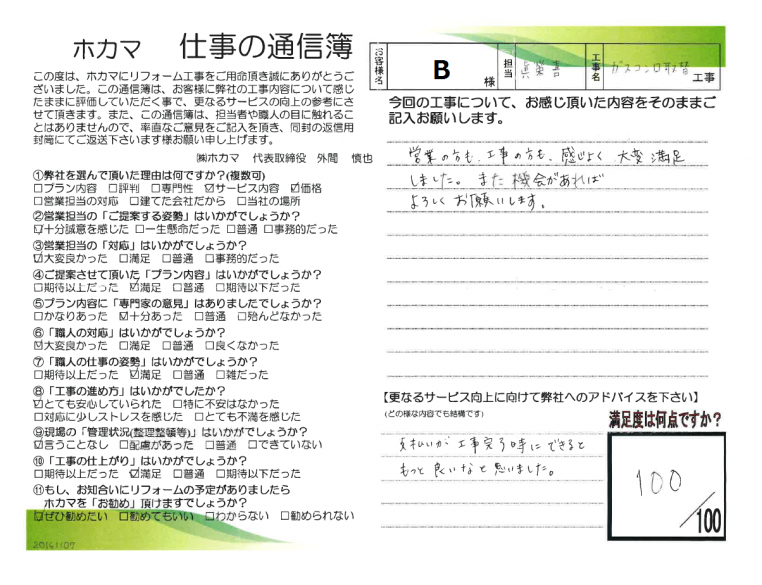 ホカマ 仕事の通信簿
この度は、ホカマにリフォーム工事をご用命頂き誠にありがとうご
ざいました。この通信簿は、お客様に弊社の工事内容について感じ
たままに評価していただく事で、更なるサービスの向上の参考にさ
せて頂きます。また、この通信簿は、担当者や職人の目に触れるこ
とはありませんので、率直なご意見をご記入を頂き、同封の返信用
封筒にてご返送下さいます様お願い申し上げます。
㈱ホカマ 代表取締役 外間 慎也
①弊社を選んで頂いた理由は何ですか?(複数可)
□プラン内容 □評判 □専門性 ☑サービス内容 ☑価格
□営業担当の対応 □建てた会社だから □当社の場所
②営業担当の「ご提案する姿勢」はいかがでしょうか?
☑十分誠意を感じた □一生懸命だった □普通 □事務的だった
③営業担当の「対応」はいかがでしょうか?
☑大変良かった □満足 □普通 □事務的だった
④ご提案させて頂いた「プラン内容」はいかがでしょうか?
□期待以上だった ☑満足 □普通 □期待以下だった
⑤プラン内容に「専門家の意見」はありましたでしょうか?
□かなりあった ☑十分あった □普通 □殆んどなかった
⑥「職人の対応」はいかがでしょうか?
☑大変良かった □満足 □普通 □良くなかった
⑦「職人の仕事の姿勢」はいかがでしょうか?
□期待以上だった ☑満足 □普通 □雑だった
⑧「工事の進め方」はいかがでしたか?
☑とても安心していられた □特に不安はなかった
□対応に少しストレスを感じた □とても不満を感じた
⑨現場の「管理状況(整理整頓等)」はいかがでしょうか?
☑言うことなし □配慮があった □普通 □できていない
⑩「工事の仕上がり」はいかがでしょうか?
□期待以上だった ☑満足 □普通 □期待以下だった
⑪もし、お知合いにリフォームの予定がありましたら
ホカマを「お勧め」頂けますでしょうか?
☑ぜひ勧めたい □勧めてもいい □わからない □勧められない
20161107
お客様名 B 様 担当 眞榮喜 工事名 ガスコンロ取替 工事
今回の工事について、お感じ頂いた内容をそのままご
記入お願いします。
営業の方も、工事の方も、感じよく 大変満足
しました。また機会があれば
よろしくお願いします。
【更なるサービス向上に向けて弊社へのアドバイスを下さい】
(どの様な内容でも結構です)
支払いが工事完了時にできると
もっと良いなと思いました。
満足度は何点ですか?
100
/100